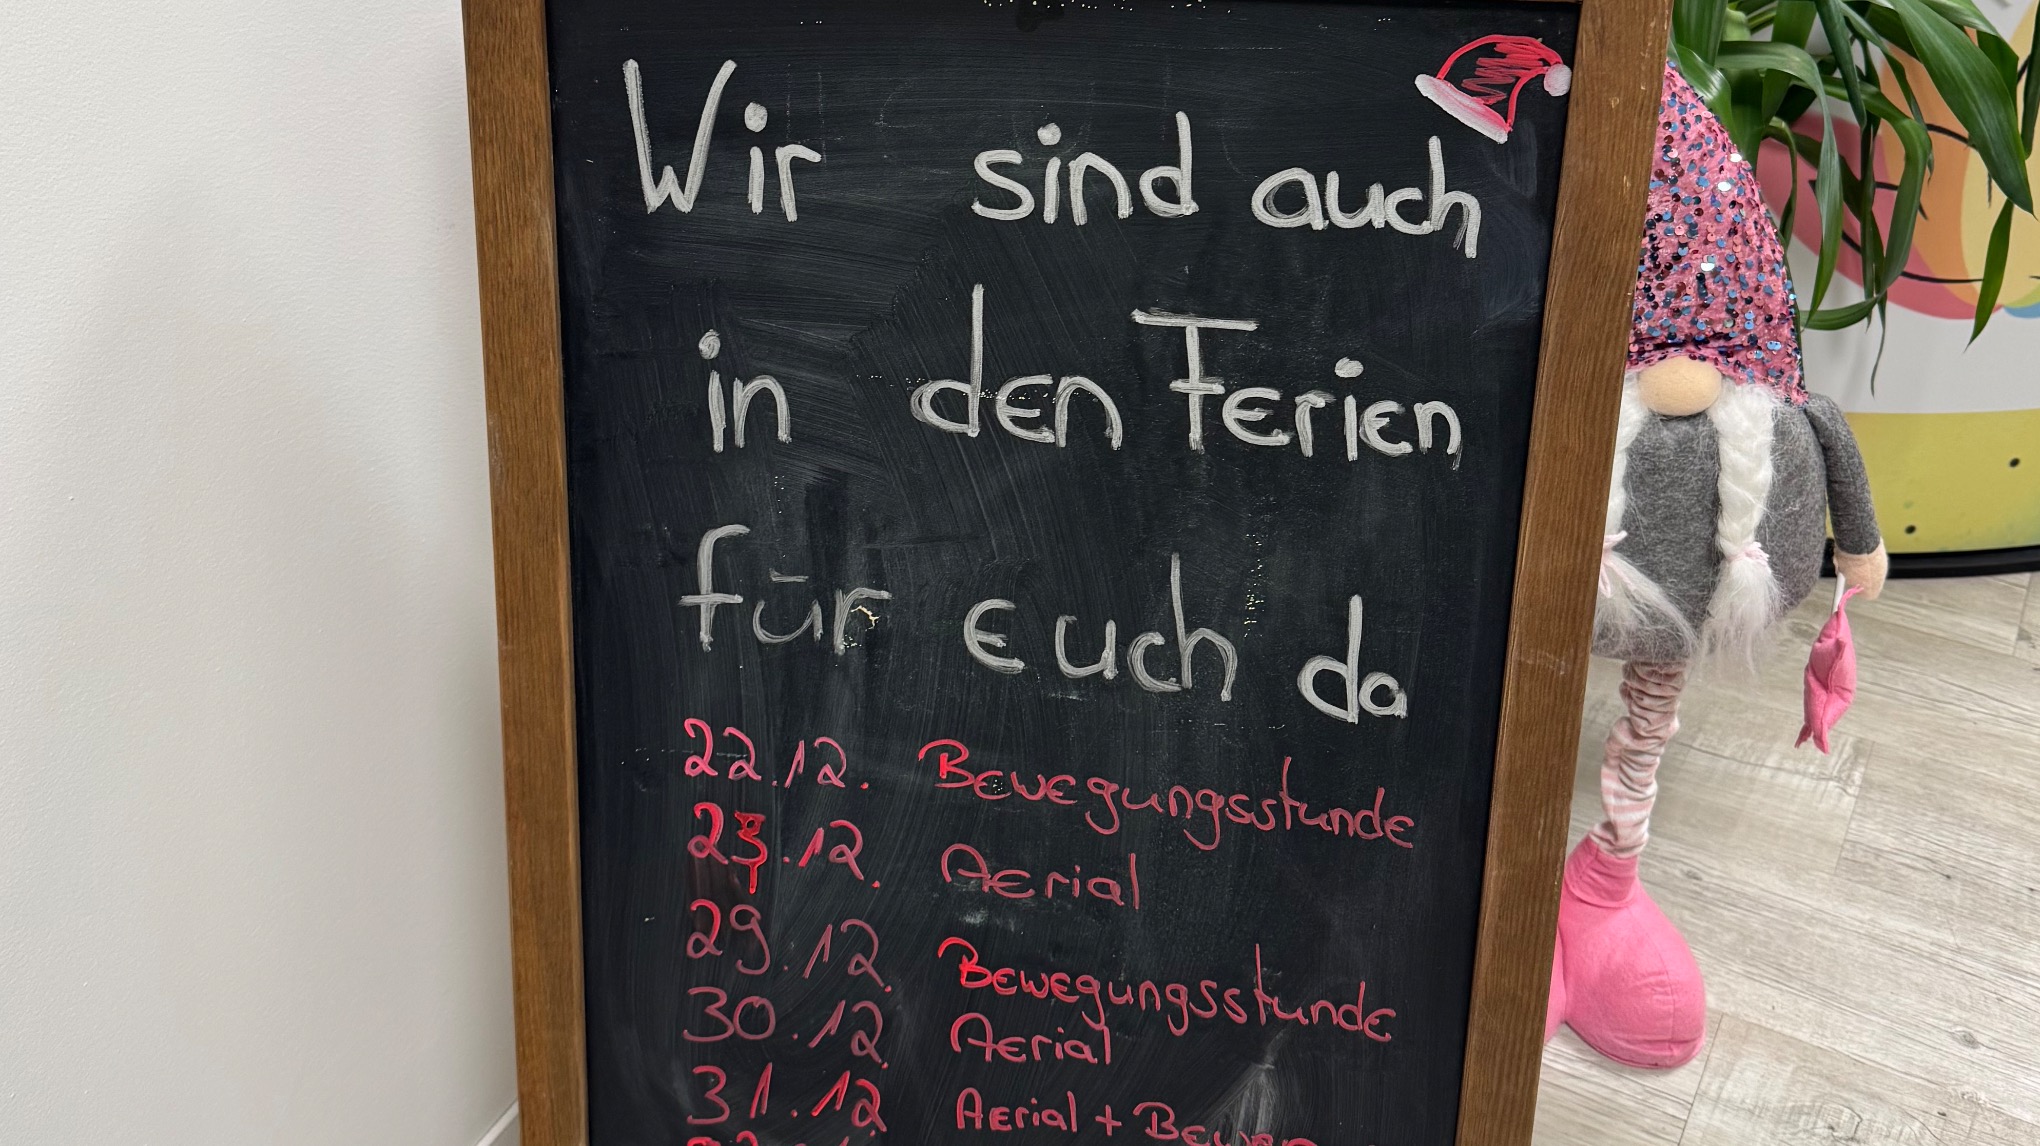 Wir sind auch
in den Ferien
für Euch da
22.12. Bewegungsstunde
23.12. Aerial
29.12. Bewegungsstunde
30.12. Aerial
31.12 Aerial +